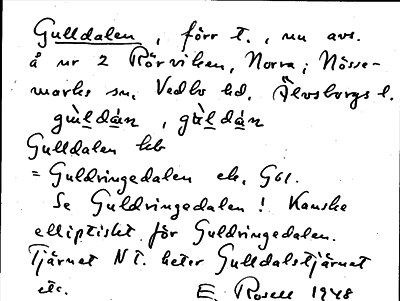 Gulldalen, förr t., nu avs.
å nr 2 Rörviken, Norra; Nösse-
marks sn, Vedbo hd, Älvsborgs l.
gùldán, gùldán
Gulldalen kb
= Guldringedalen ek. G61.
Se Guldringedalen! Kanske
elliptiskt för Guldringedalen.
Tjärnet NT. heter Gulldalstjärnet
etc. E. Rosell 1948